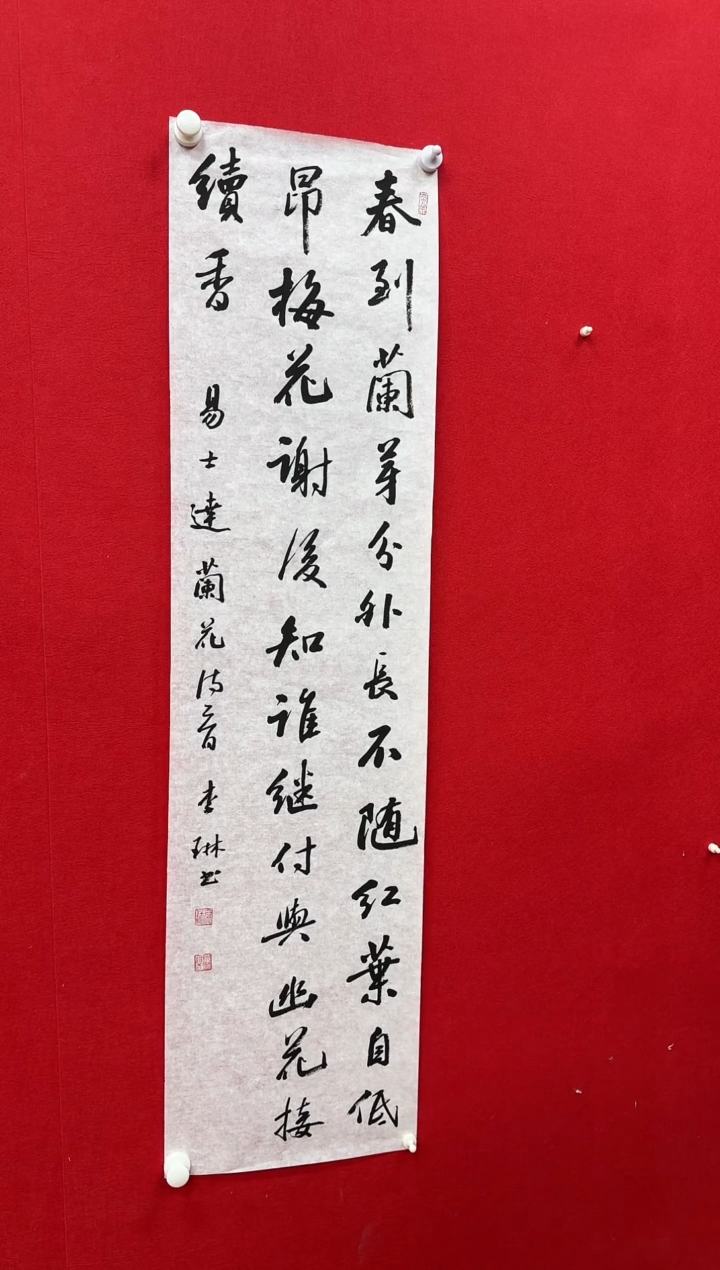 春到蘭芽分外長不随紅葉自低
昂梅花謝後知誰继付與幽花接
續香 易士達蘭花诗一首 李琳书